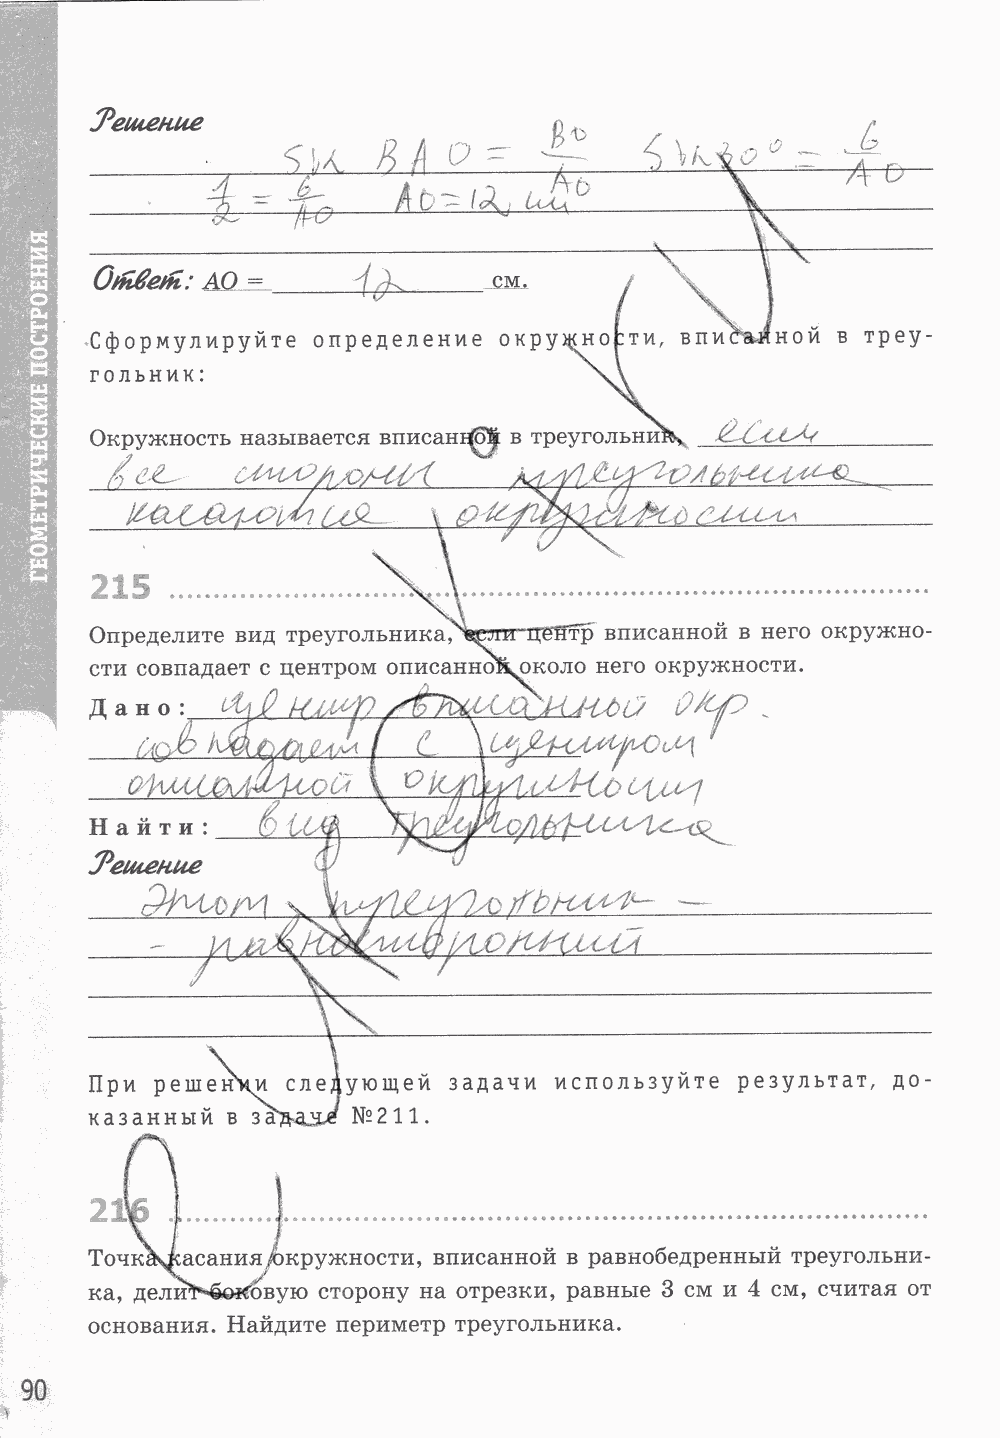 Решение
Sin BAO = BO/AO Sin 30° = 6/AO
1/2 = 6/AO AO = 12 см
Ответ: AO = 12 см.
Сформулируйте определение окружности, вписанной в треу-
гольник:
Окружность называется вписанной в треугольник, если
все стороны треугольника
касаются окружности
215
Определите вид треугольника, если центр вписанной в него окружно-
сти совпадает с центром описанной около него окружности.
Дано: центр вписанной окр.
совпадает с центром
описанной окружности
Найти: вид треугольника
Решение
Этот треугольник –
– равносторонний
При решении следующей задачи используйте результат, до-
казанный в задаче №211.
216
Точка касания окружности, вписанной в равнобедренный треугольни-
ка, делит боковую сторону на отрезки, равные 3 см и 4 см, считая от
основания. Найдите периметр треугольника.
90
ГЕОМЕТРИЧЕСКИЕ ПОСТРОЕНИЯ